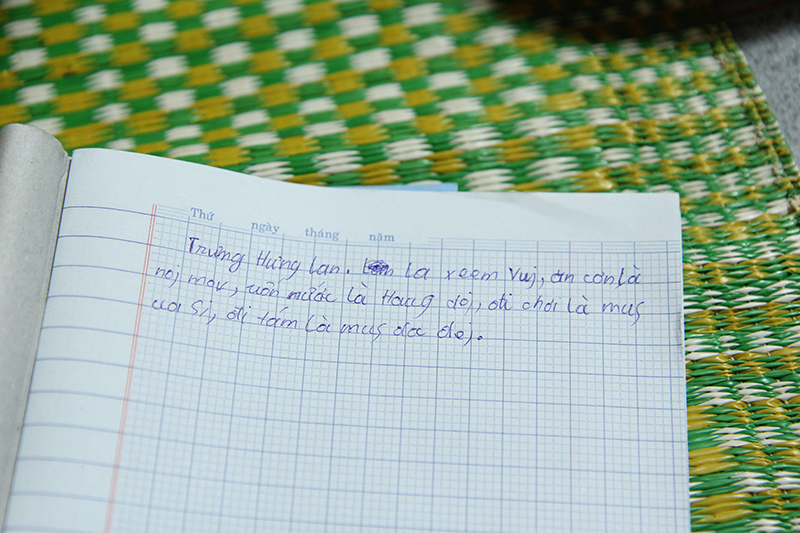 Thứ ngày tháng năm
Trưởng Hưng lan. la xeem Vuj, ăn cơn là
noj mov, uôn nước là Hauq dej, đi chơi là mus
ua Si, đi tắm là mus da dej.